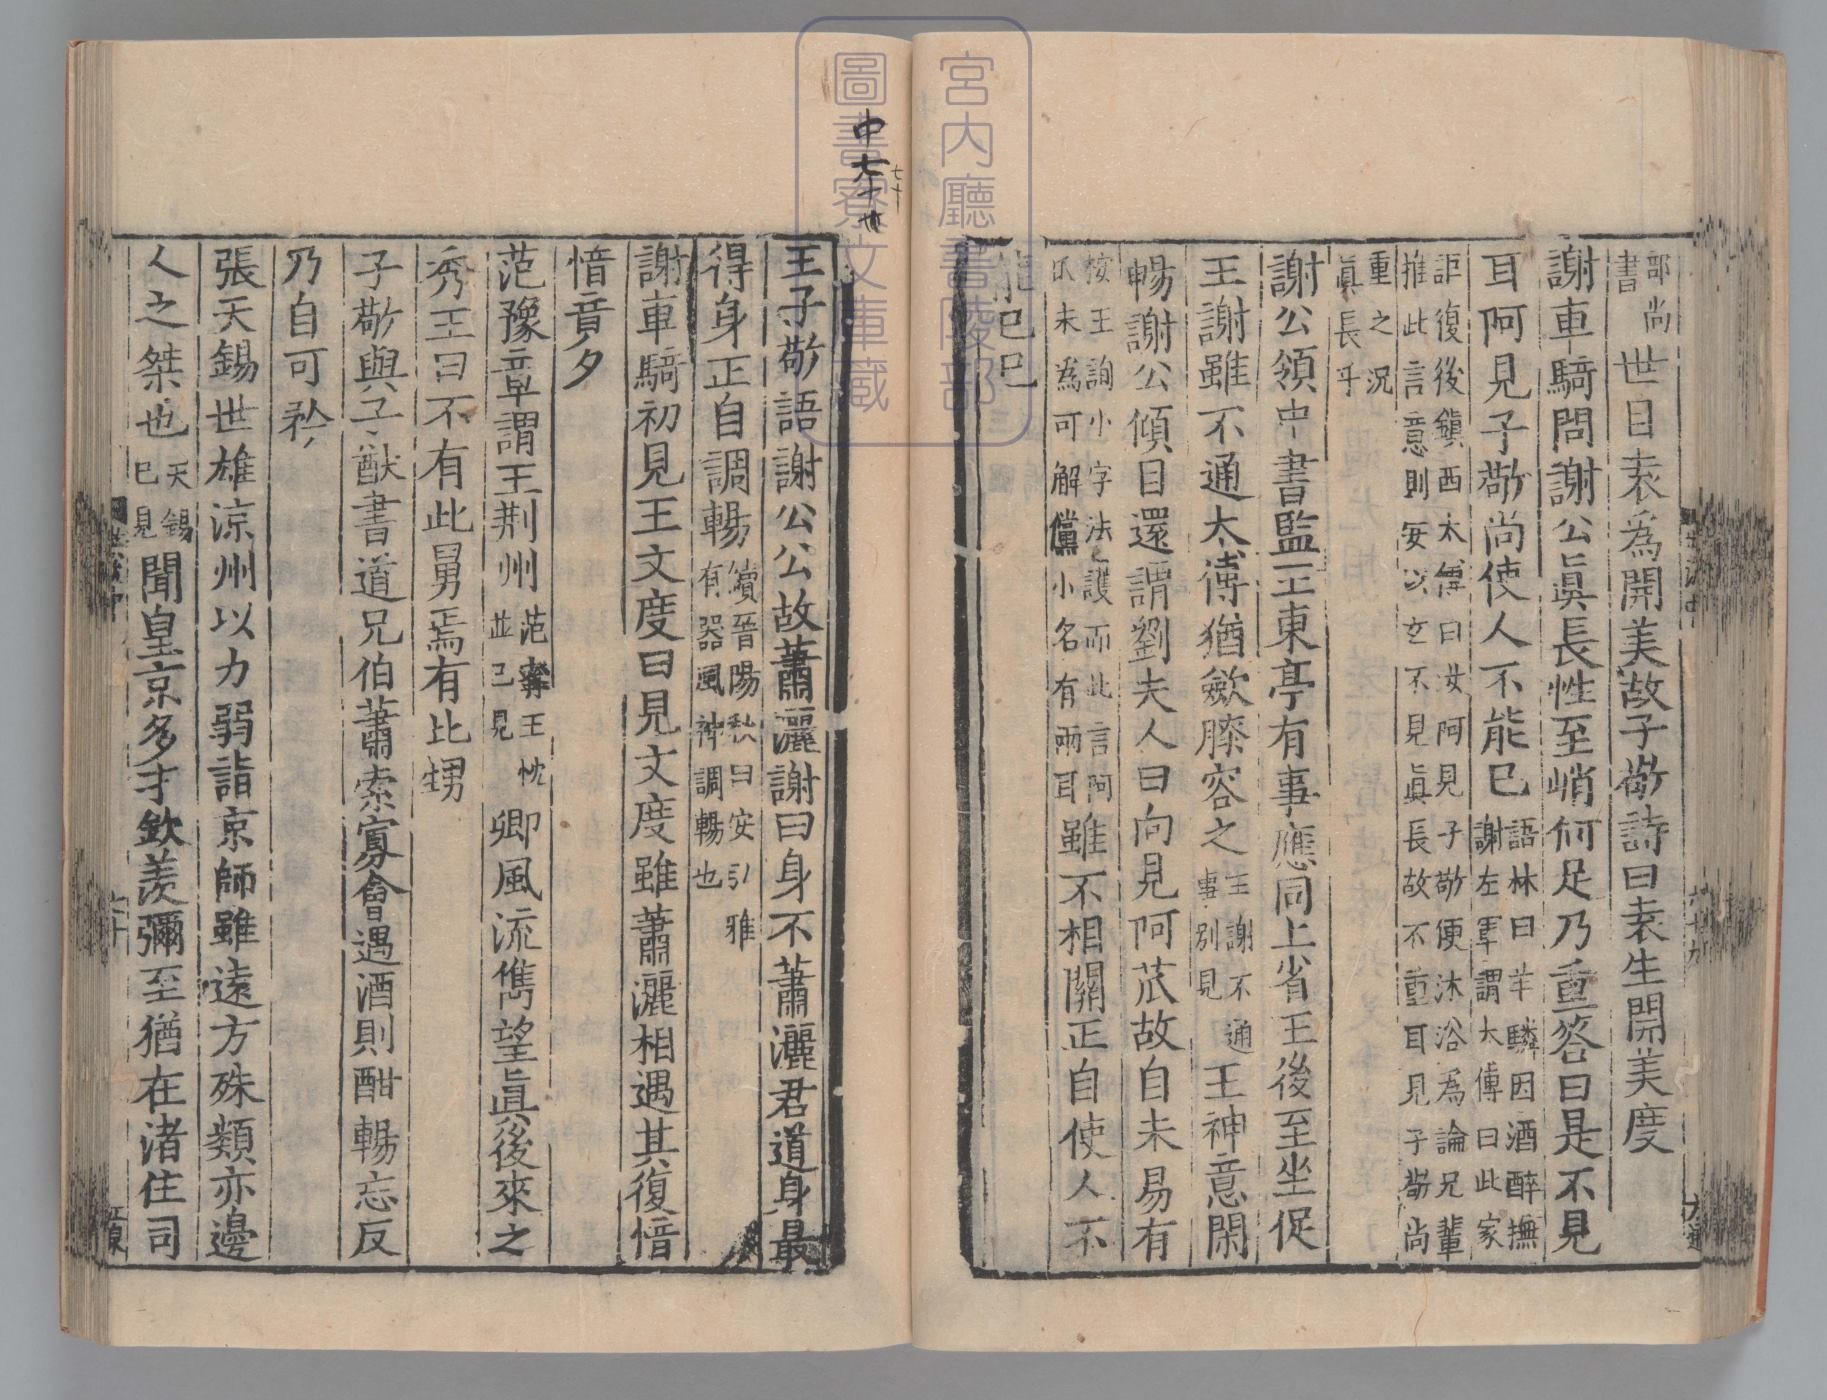 部尚
書
世目袁爲開美故子敬詩曰袁生開美度
謝車騎問謝公眞長性至峭何足乃重答曰是不見
耳阿見子敬尚使人不能已
語林曰羊驎因酒醉撫
謝左軍謂太傅曰此家
詎復後鎮西太傅曰汝阿見子敬便沐浴爲論兄輩
推此言意則安以玄不見眞長故不重耳見子敬尚
重之況
眞長乎
謝公領中書監王東亭有事應同上省王後至坐促
王謝雖不通太傅猶斂膝容之
王謝不通
事別見
王神意閑
暢謝公傾目還謂劉夫人曰向見阿苽故自未易有
按王詢小字法護而此言阿
苽未爲可解儻小名有兩耳
雖不相關正自使人不
能已已
王子敬語謝公公故蕭灑謝曰身不蕭灑君道身最
得身正自調暢
續晉陽秋曰安弘雅
有器風神調暢也
謝車騎初見王文度曰見文度雖蕭灑相遇其復愔
愔竟夕
范豫章謂王荆州
范甯王忱
並已見
卿風流儁望眞後來之
秀王曰不有此舅焉有比甥
子敬與子猷書道兄伯蕭索寡會遇酒則酣暢忘反
乃自可矜
張天錫世雄涼州以力弱詣京師雖遠方殊類亦邊
人之桀也
天錫
已見
聞皇京多才欽羨彌至猶在渚住司
中七十廿
七十
宮内廳書陵部
圖書寮文庫藏